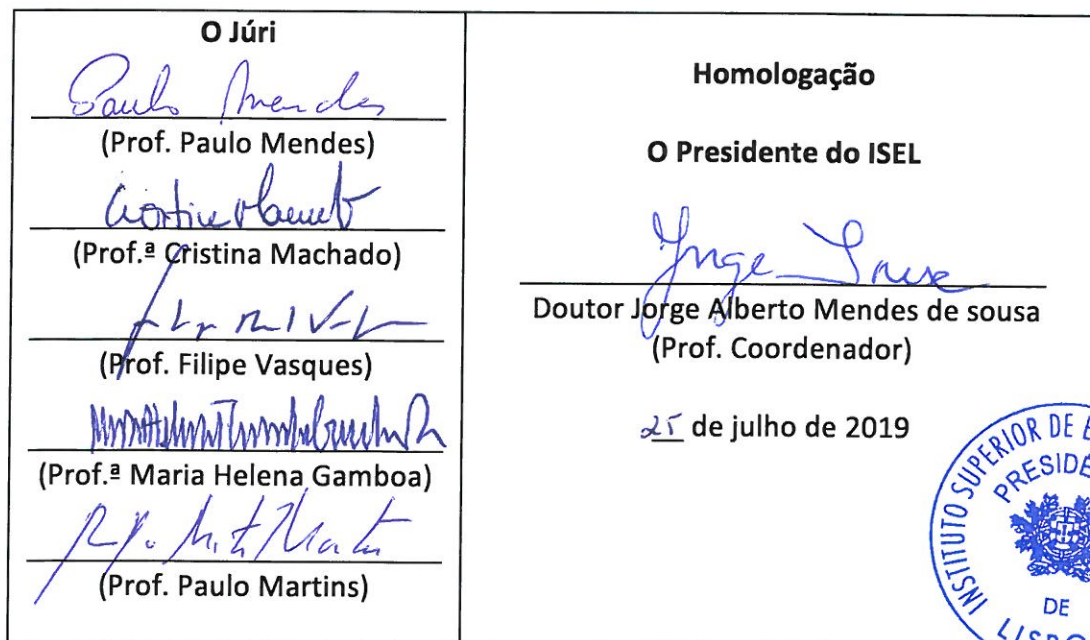 O Júri
Paulo Mendes
(Prof. Paulo Mendes)
(Prof.ª Cristina Machado)
(Prof. Filipe Vasques)
(Prof.ª Maria Helena Gamboa)
(Prof. Paulo Martins)
Homologação
O Presidente do ISEL
Jorge Sousa
Doutor Jorge Alberto Mendes de sousa
(Prof. Coordenador)
25 de julho de 2019
INSTITUTO SUPERIOR DE E
PRESIDÊ
DE
LISBO